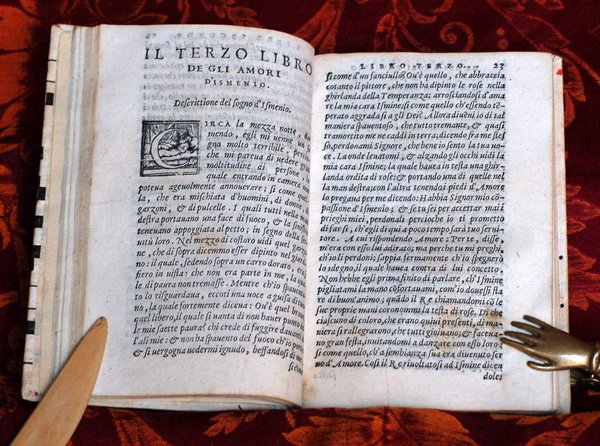 IL TERZO LIBRO
DE GLI AMORI
D'ISMENIO.
Descrittione del sogno d'Ismenio.
CIRCA la mezza notte, dormendo
mendo, egli mi uenne un sogno
gno molto terribile, percio
che mi parea di uedere una
moltitudine di persone, la
quale entrata in camera non
poteua ageuolmente annouerare; si come quella
la, che era mischiata d'huomini, di donne,
garzoni, & di pulcelle. I quali tutti nella man
destra portauano una face di fuoco, & la sinistra
teneuano appoggiata al petto; in segno della
tutù loro. Nel mezzo di costoro uidi quel
ne, che di sopra dicemmo esser dipinto nel giardi
no: il quale, sedendo sopra un carro dorato,
fiero in uista: che non era parte in me, la
le di paura non tremasse. Mentre ch'io spauen
to lo risguardaua, eccoti una uoce a guisa di
na, la quale fortemente diceua: Ou'è quel
quel libero, il qual si uanta di non hauer punto
le mie saette paura? chi crede di fuggire dauanti
l'ali mie: & non ha spauento del fuoco ch'io
& si uergogna uedermi ignudo, beffandosi
LIBRO TERZO. 23
si come d'un fanciullo? Ou'è quello, che abbraccia
cotanto il pittore, che non ha dipinto le rose nella
ghirlanda della Temperanza: arrosciandosi d'ama
re la mia cara Ismine: si come quello ch'essendo tem
perato aggrada sì a gli Dei? Allora diuēni io di tal
maniera spauentoso, che tutto tremante, & quasi
tramortito me ne caddi in terra; dicendo: Habbi
so, perdonami Signore, che bene intendo la tua uo
ce. La onde leuatomi, & alzando gli occhi uidi la
mia cara Ismine; la quale haueua in testa una ghir
landa ordita di rose: & portando una di quelle nel
la man destra; con l'altra tenendo i piedi d'Amore
lo pregaua per me dicendo: Habbia Signor mio cō
passione d'Ismenio; & se tu sei per accettar mai i
preghi miei, perdonali perciocche io ti prometto
di far sì, che egli di qui a poco tempo sarà tuo serui
tore. A cui rispondendo Amore: Perte, disse,
m'era con esso lui adirato; ma perche tu mi preghi,
io gli perdoni; sappia fermamente ch'io spegnerò
lo sdegno, il qual hauea contra di lui concetto.
Non hebbe egli prima finito di parlare, ch'Ismine
pigliatami la mano cōfortauami, com'io douessi sta
re di buon'animo; quādo il Re chiamandomi cō le
sue proprie mani coronommi la testa di rose. Di che
ciascuno di coloro, che erano quiui presenti, di ma
niera si rallegrarono, che tutti giouiano; & faceua
no gran festa, inuitandomi a danzare con esso loro:
si come quello, ch'a sembianza sua era diuenuto ser
uo d'Amore. Così il Re riuoltosi ad Ismine dicen
dole: